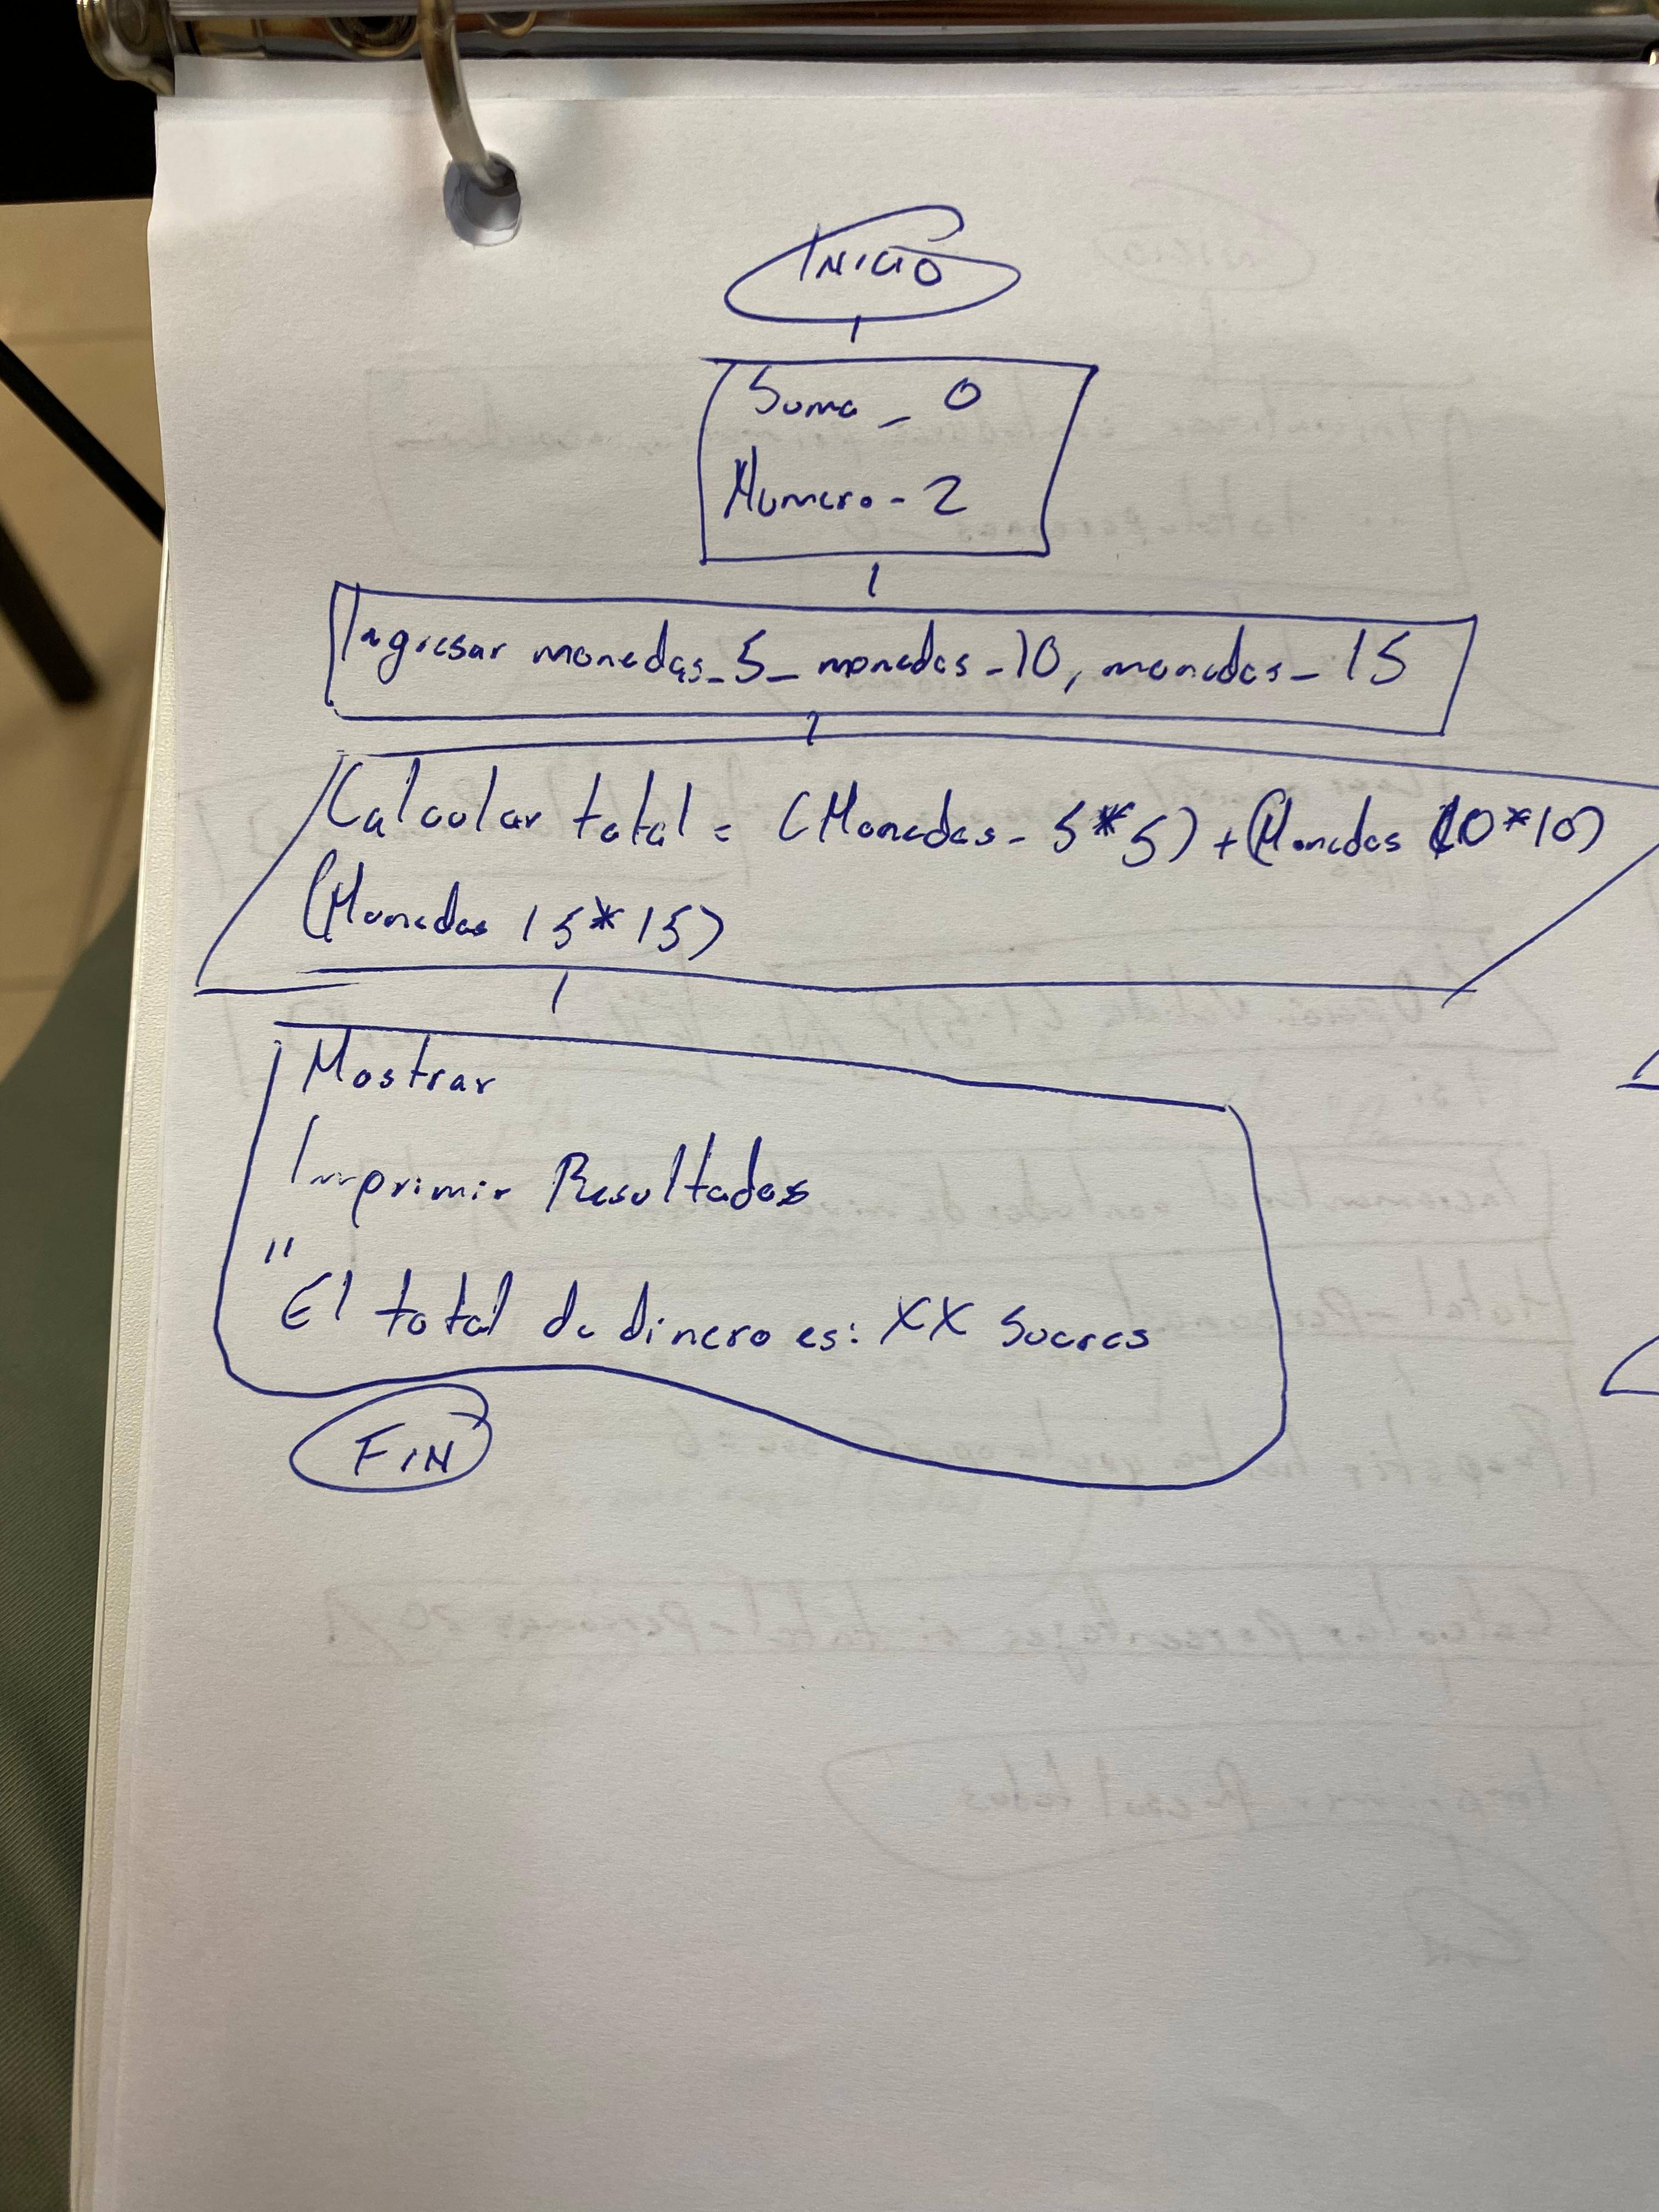 INICIO
Suma _ 0
Numero - 2
Ingresar monedas_5_ monedas - 10, monedas - 15
Calcular total = (Monedas - 5*5) + (Monedas 10*10)
(Monedas 15*15)
Mostrar
Imprimir Resultados
"El total de dinero es: XX Sucres
FIN